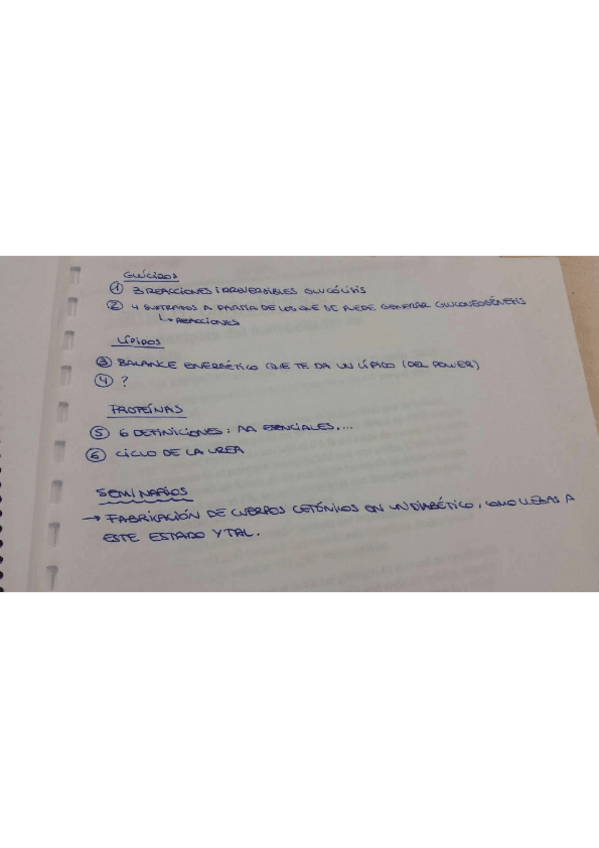 GLÚCIDOS
① 3 REACCIONES IRREVERSIBLES GLUCÓLISIS
② 4 SUSTRATOS A PARTIR DE LOS QUE SE PUEDE GENERAR GLUCONEOGÉNESIS
↳ REACCIONES
LÍPIDOS
③ BALANCE ENERGÉTICO QUE TE DA UN LÍPIDO (DEL POWER)
④ ?
PROTEÍNAS
⑤ 6 DEFINICIONES: AA ESENCIALES....
⑥ CICLO DE LA UREA
SEMINARIOS
→ FABRICACIÓN DE CUERPOS CETÓNICOS EN UN DIABÉTICO, COMO LLEGAS A
ESTE ESTADO Y TAL.